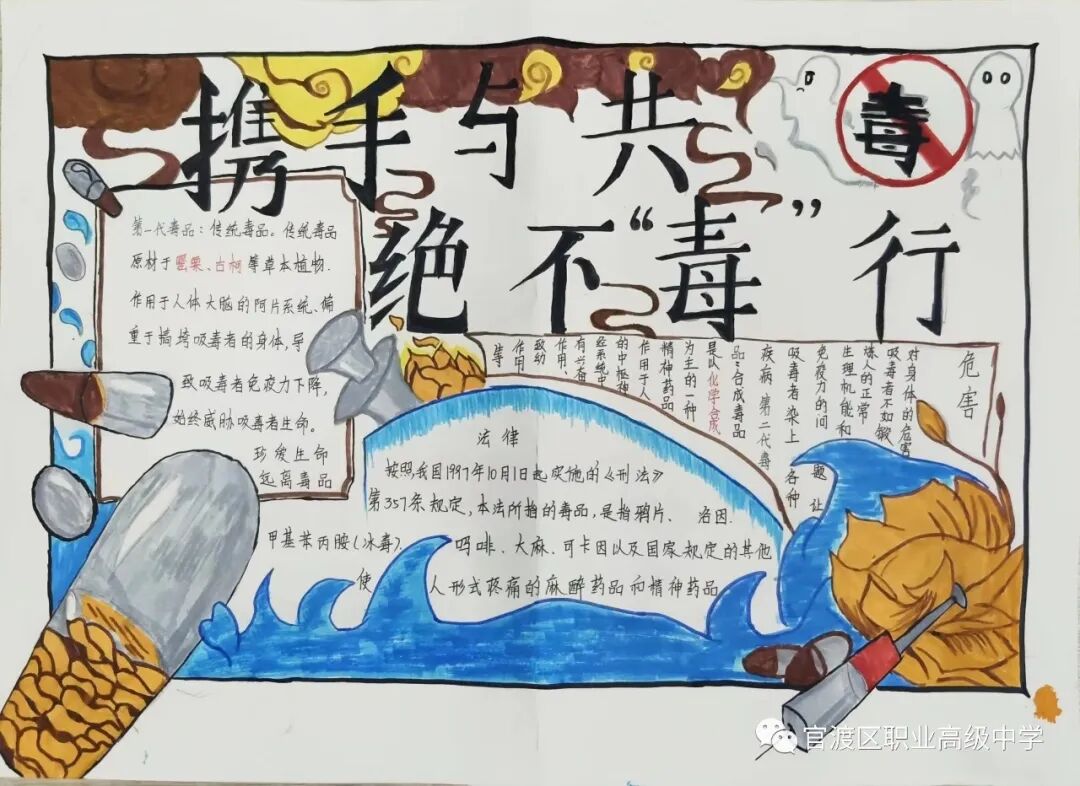 携手与共
毒
绝不“毒”行
第一代毒品：传统毒品。传统毒品
原材于罂粟、古柯等草本植物.
作用于人体大脑的阿片系统、偏
重于搞垮吸毒者的身体,导
致吸毒者免疫力下降,
始终威胁吸毒者生命。
珍爱生命
远离毒品
危害
对身体的危害
吸毒者不如锻
炼人的正常
生理机能和
免疫力的问题让
吸毒者染上各种
疾病第二代毒
品:合成毒品
是以化学合成
为主的一种
精神药品
作用于人
的中枢神
经系统中
有兴奋
作用、
致幻
作用
等
法律
按照我国1997年10月1日起实施的《刑法》
第357条规定,本法所指的毒品,是指鸦片、 洛因.
甲基苯丙胺(冰毒)、 吗啡、大麻、可卡因以及国家规定的其他
使 人形式疼痛的麻醉药品和精神药品
官渡区职业高级中学